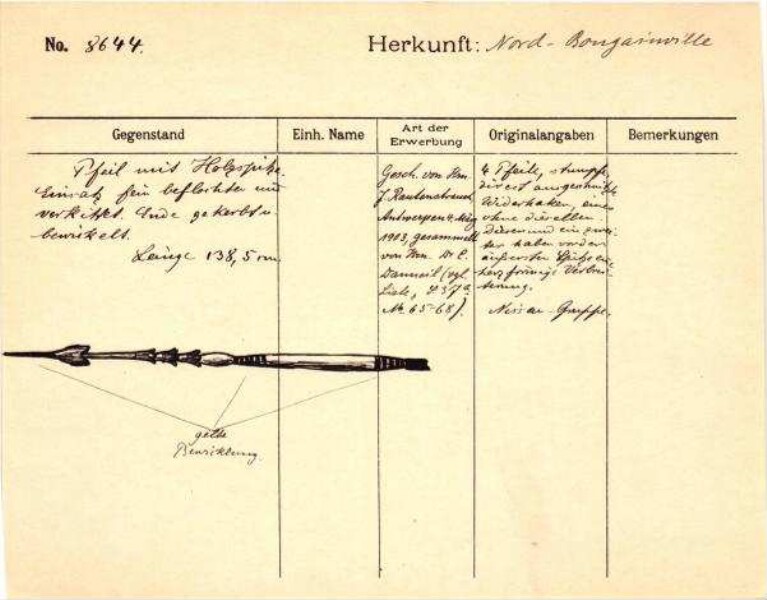 No. 8644.
Herkunft: Nord-Bougainville
Gegenstand
Einh. Name
Art der
Erwerbung
Originalangaben
Bemerkungen
Pfeil mit Holzspitze.
Einsatz fein beflochten und
verkittet. Ende gekerbt u.
bewickelt.
Länge 138,5 cm
Gesch. von Hrn.
J. Rautenstrauch,
Antwerpen
1903, gesammelt
von Hrn. Dr E.
Danneil (vgl.
Liste,
No 65-68).
4 Pfeile, stumpfe,
ausgeschnitzte
Widerhaken, einer
ohne dieselben.
Dieser und ein zwei-
ter haben vor der
äußersten Spitze eine
herzförmige Verbrei-
terung.
Nissan-Gruppe.
gelbe
Bewicklung.